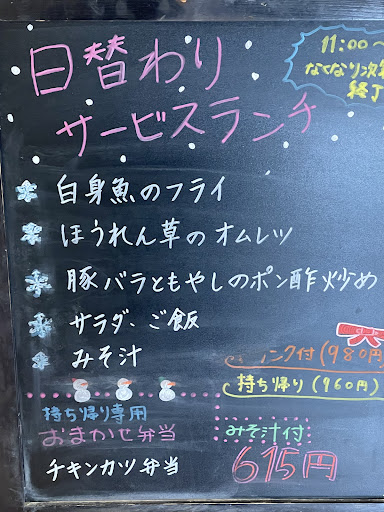 日替わり
サービスランチ
11:00~
なくなり次第
終了
白身魚のフライ
ほうれん草のオムレツ
豚バラともやしのポン酢炒め
サラダ、ご飯
みそ汁
ンク付(980円
持ち帰り(960円)
持ち帰り専用
おまかせ弁当
みそ汁付
チキンカツ弁当
615円